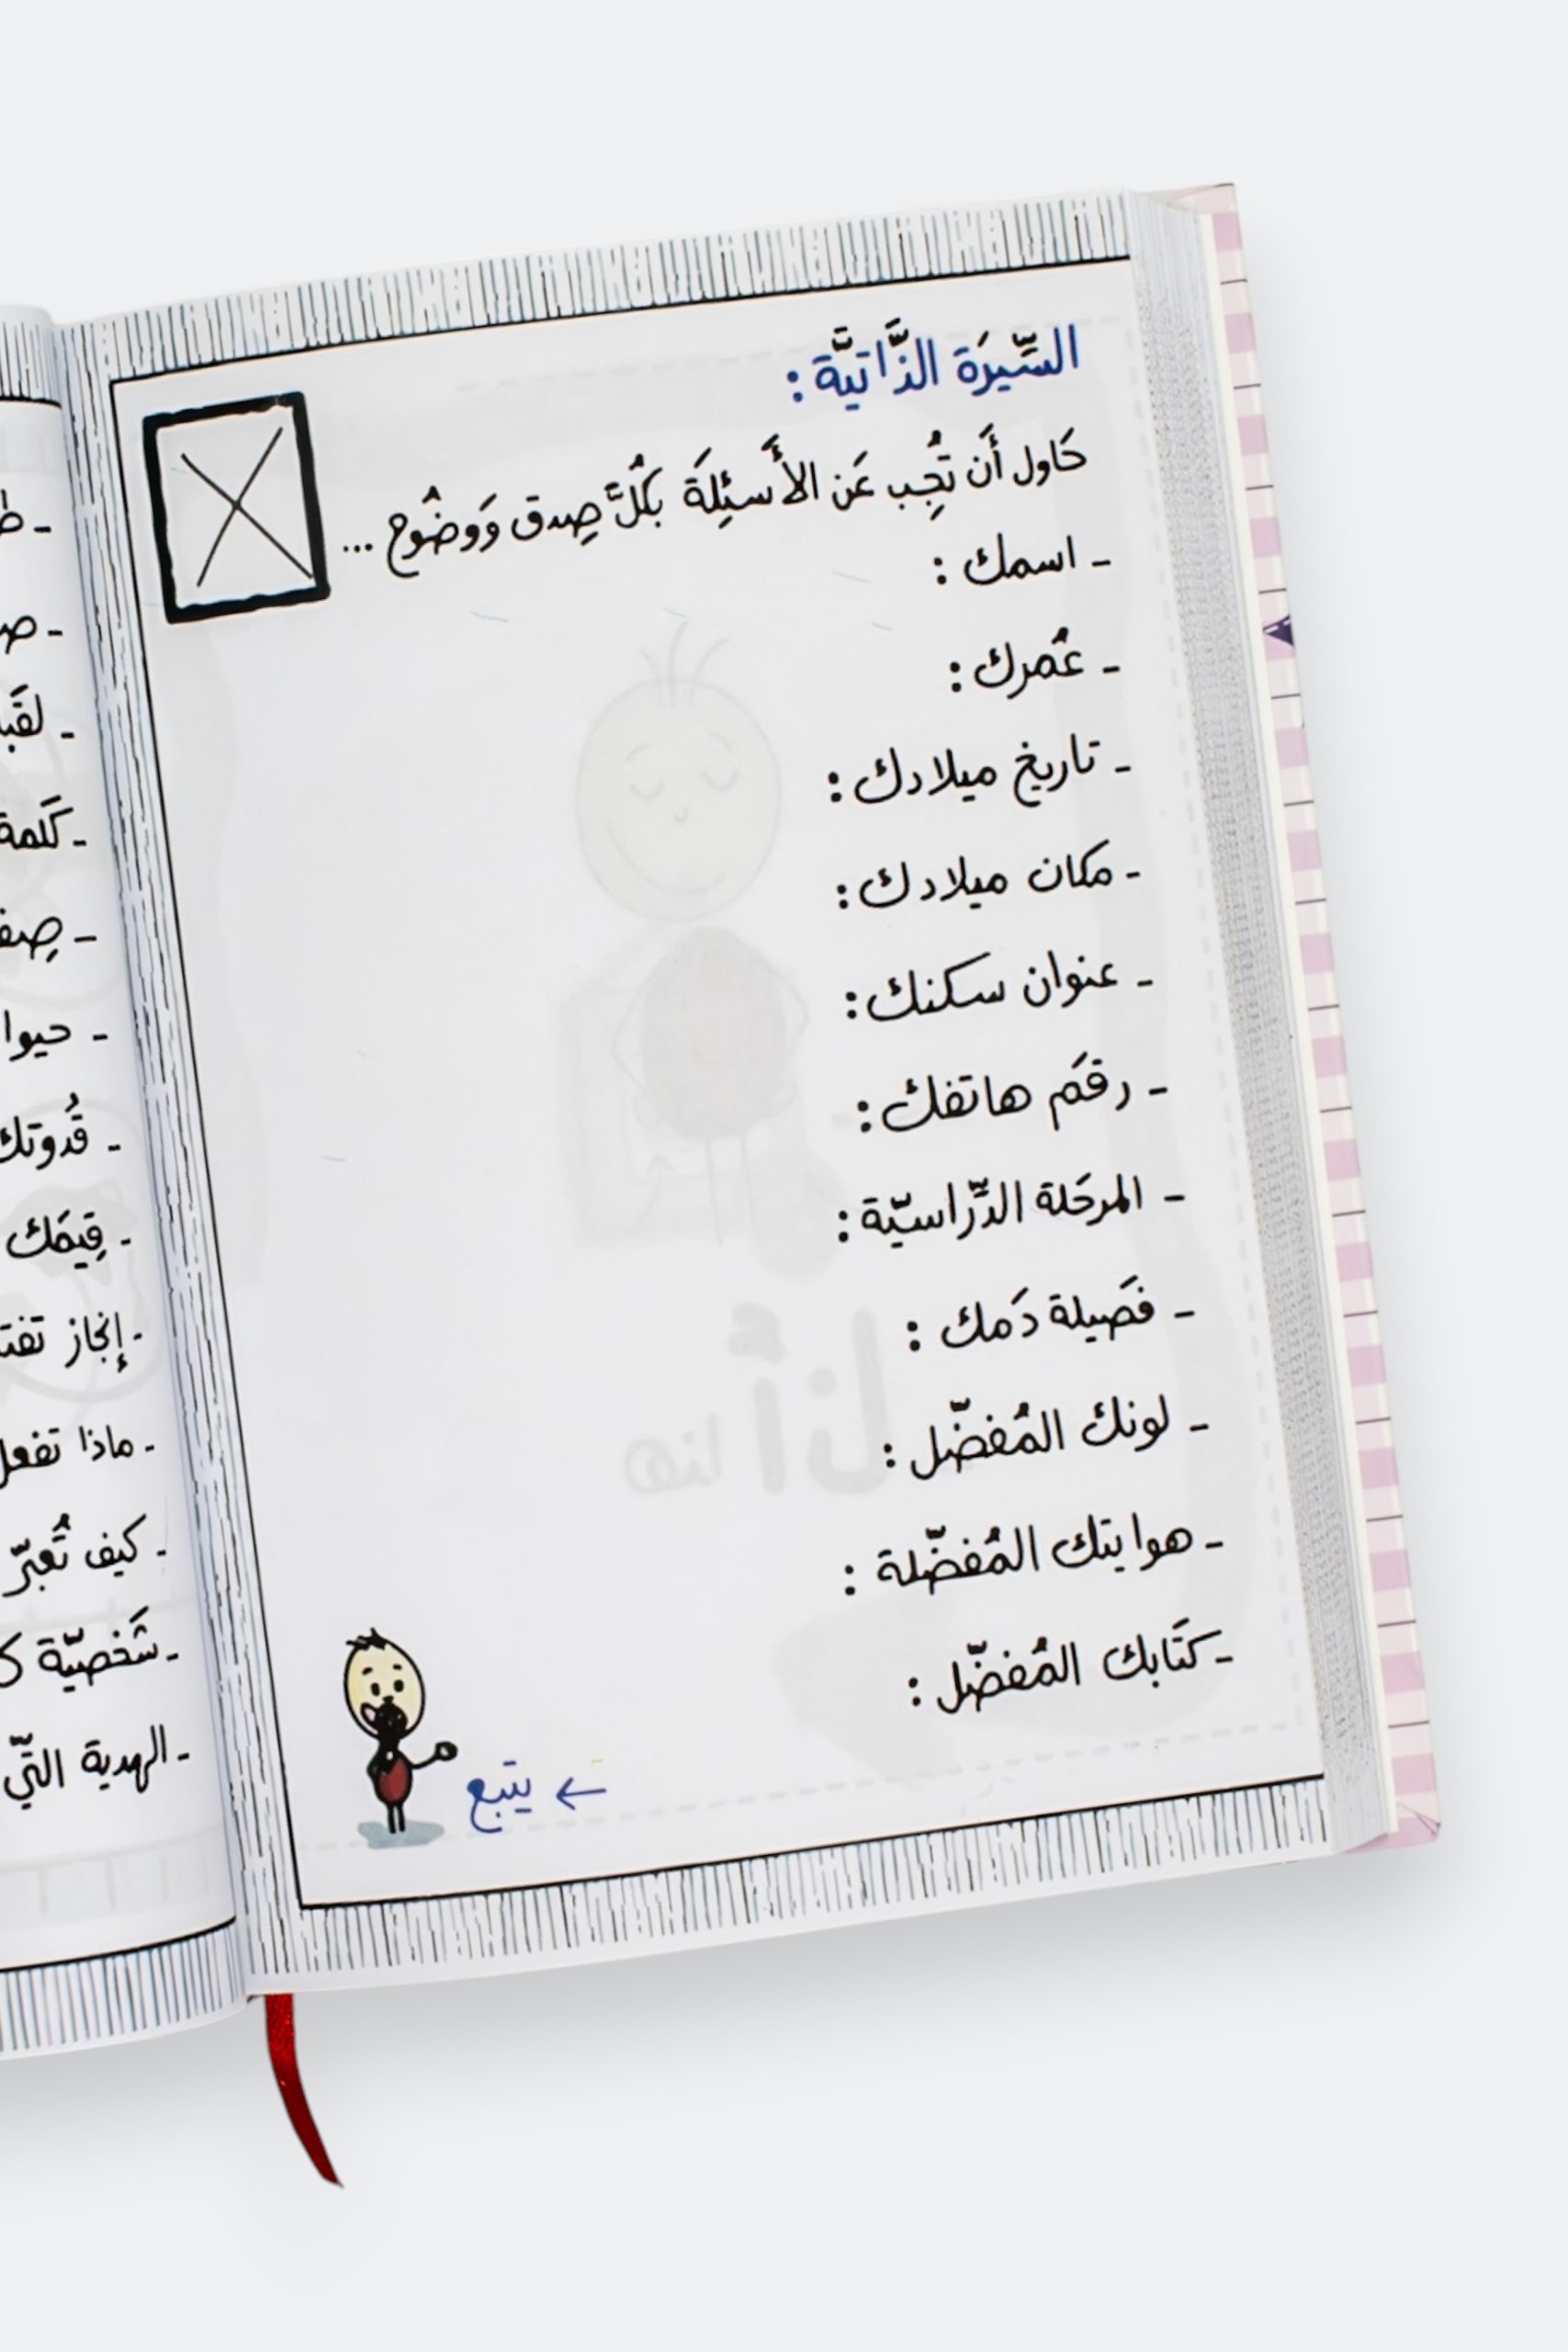 السِّيرَة الذَّاتيَّة :
حَاول أَن تُجِب عَن الأَسئِلَة بكُلَّ صِدق وَوضُوح ...
- اسمك :
- عُمرك :
- تاريخ ميلادك :
- مكان ميلادك :
- عنوان سكنك :
- رقَم هاتفك :
- المرحَلة الدِّراسيّة :
- فَصيلة دَمك :
- لونك المُفضّل :
- هوايتك المُفضّلة :
- كتَابك المُفضّل :
← يتبع
- كَلمة
- حيوا
- قُدوتك
- قِيمَك
- إنجاز تفتـ
- ماذا تفعل
- كيف تُعبّر
- شَخصيّة كـ
- الهدية التّي